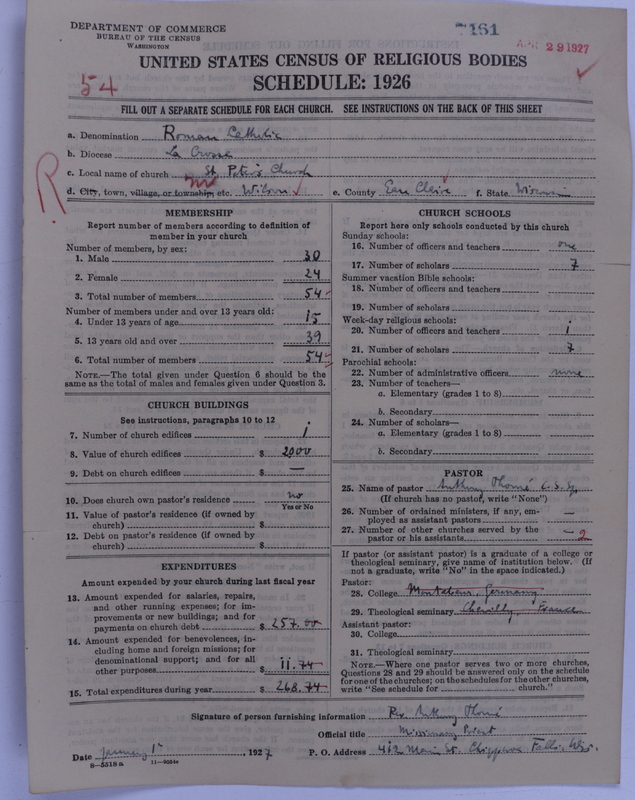 DEPARTMENT OF COMMERCE
BUREAU OF THE CENSUS
WASHINGTON
7161
APR 29 1927
UNITED STATES CENSUS OF RELIGIOUS BODIES
54
SCHEDULE: 1926
FILL OUT A SEPARATE SCHEDULE FOR EACH CHURCH. SEE INSTRUCTIONS ON THE BACK OF THIS SHEET
a. Denomination Roman Catholic
b. Diocese La Crosse
c. Local name of church St. Peter's Church
R
d. City, town, village, or township, etc. Wilson e. County Eau Claire f. State Wisconsin
MEMBERSHIP
Report number of members according to definition of
member in your church
Number of members, by sex:
1. Male 30
2. Female 24
3. Total number of members 54
Number of members under and over 13 years old:
4. Under 13 years of age 15
5. 13 years old and over 39
6. Total number of members 54
NOTE.—The total given under Question 6 should be the
same as the total of males and females given under Question 3.
CHURCH BUILDINGS
See instructions, paragraphs 10 to 12
7. Number of church edifices 1
8. Value of church edifices $ 2000
9. Debt on church edifices $ —
10. Does church own pastor's residence no
Yes or No
11. Value of pastor's residence (if owned by
church) $
12. Debt on pastor's residence (if owned by
church) $
EXPENDITURES
Amount expended by your church during last fiscal year
13. Amount expended for salaries, repairs,
and other running expenses; for im-
provements or new buildings; and for
payments on church debt $ 257.00
14. Amount expended for benevolences, in-
cluding home and foreign missions; for
denominational support; and for all
other purposes $ 11.74
15. Total expenditures during year $ 268.74
CHURCH SCHOOLS
Report here only schools conducted by this church
Sunday schools:
16. Number of officers and teachers one
17. Number of scholars 7
Summer vacation Bible schools:
18. Number of officers and teachers
19. Number of scholars
Week-day religious schools:
20. Number of officers and teachers 1
21. Number of scholars 7
Parochial schools:
22. Number of administrative officers none
23. Number of teachers—
a. Elementary (grades 1 to 8)
b. Secondary
24. Number of scholars—
a. Elementary (grades 1 to 8)
b. Secondary
PASTOR
25. Name of pastor Anthony Thomé C.S.Sp.
(If church has no pastor, write "None")
26. Number of ordained ministers, if any, em-
ployed as assistant pastors —
27. Number of other churches served by the
pastor or his assistants — 2
If pastor (or assistant pastor) is a graduate of a college or
theological seminary, give name of institution below. (If
not a graduate, write "No" in the space indicated.)
Pastor:
28. College Montabaur, Germany
29. Theological seminary Chevilly France
Assistant pastor:
30. College
31. Theological seminary
NOTE.—Where one pastor serves two or more churches,
Questions 28 and 29 should be answered only on the schedule
for one of the churches; on the schedules for the other churches,
write "See schedule for church."
Signature of person furnishing information Rev Anthony Thomé
Official title Missionary Priest
Date January 1st, 1927 P. O. Address 412 Main St. Chippewa Falls, Wis.
8-5518a 11-9054a